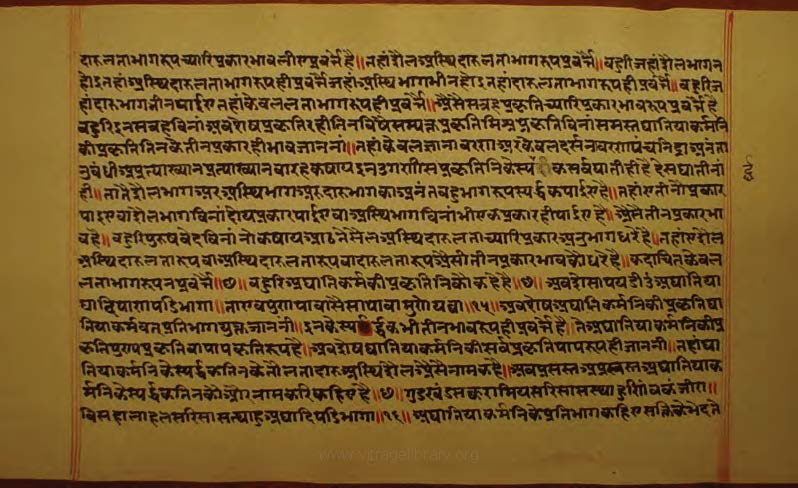 दारुलताभागरूपच्यारिप्रकारभावलीएंप्रवर्त्तै है॥ जहांशैलअस्थिदारुलताभागरूपप्रवर्त्तै॥ बहुरिजहांशैलभागन
होइतहांअस्थिदारुलताभागरूपहीप्रवर्त्तै जहांअस्थिभागभीनहोइतहांदारुलताभागरूपहीप्रवर्त्तै॥ बहुरिज
हांदारुभागभीनपाईए तहांकेवललताभागरूपहीप्रवर्त्तै॥ अैसैं सत्रहप्रकृतिच्यारिप्रकारभावरूपप्रवर्त्तै है
बहुरिइनसत्रहविनांअवशेषप्रकृतिरहीतिनविषैंसम्यक्त्वप्रकृतिमिश्रप्रकृतिविनांसमस्तघातियाकर्मनि
कीप्रकृतितिनके तीनप्रकारहीभावजाननां॥ तहांकेवलज्ञानावरण अर केवलदर्सनावरणपंचनिद्रा अनंता
नुबंधी अप्रत्याख्यान प्रत्याख्यानबारहकषाय इन उगणीसप्रकृतिनिकेस्पर्द्धकसर्वघातीही है देसघातीनां
ही॥ तातैंशैलभाग अर अस्थिभाग अर दारुभागकाअनंतबहुभागरूपस्पर्द्धकपाईए है॥ तहांएतीनौप्रकार
पाईए वाशैलभागविनांदोयप्रकारपाईएवाअस्थिभागविनांभीएकप्रकारहीपाईए है॥ अैसैतीनप्रकारभा
व है॥ बहुरिपुरुषवेदविनांनोकषायआठतेसैलअस्थिदारुलताच्यारिप्रकारअनुभागधरै है॥ तहांएशैल
अस्थिदारुलतारूपवाअस्थिदारुलतारूपवादारुलतारूपअैसीतीनप्रकारभावकौंधरै है॥ कदाचित्केवल
लताभागरूपनप्रवर्त्तै॥ छ॥ बहुरिअघातिकर्मकीप्रकृतिनिकौंकहै है॥ छ॥ अवसेसापयडीउअघातिया
घादियाणपडिभागा॥ ताएवपुण्णपावासेसापावामुणेयव्वा॥ १५॥ अवशेषअघातिकर्मनिकीप्रकृतिघा
तियाकर्मवतप्रतिभागयुक्तजाननी॥ इनकेस्पर्द्धकभीतीनभावरूपहीप्रवर्त्तै है॥ तेअघातियाकर्मनिकीप्र
कृतिपुण्यप्रकृतिवापापप्रकृतिरूप है॥ अवशेषघातियाकर्मनिकीसर्वप्रकृतिपापरूपहीजाननी॥ तहांघा
तियाकर्मनिकेस्पर्द्धकनिकेतौलतादारुअस्थिशैलअैसेनामकहै॥ अबप्रसस्तअप्रसस्तअघातियाक
र्मनिकेस्पर्द्धकनिकोऔरनामकरिकहिए है॥ छ॥ गुडखंडसक्करामियसरिसासत्थाहुणिंबकंजीरा॥
विसहालाहलसरिसासत्थाहुअघादिपडिभागा॥ १६॥ अघातियाकर्मनिकेप्रतिभागकहिएसक्तिकेभेदते
www.vitragelibrary.org